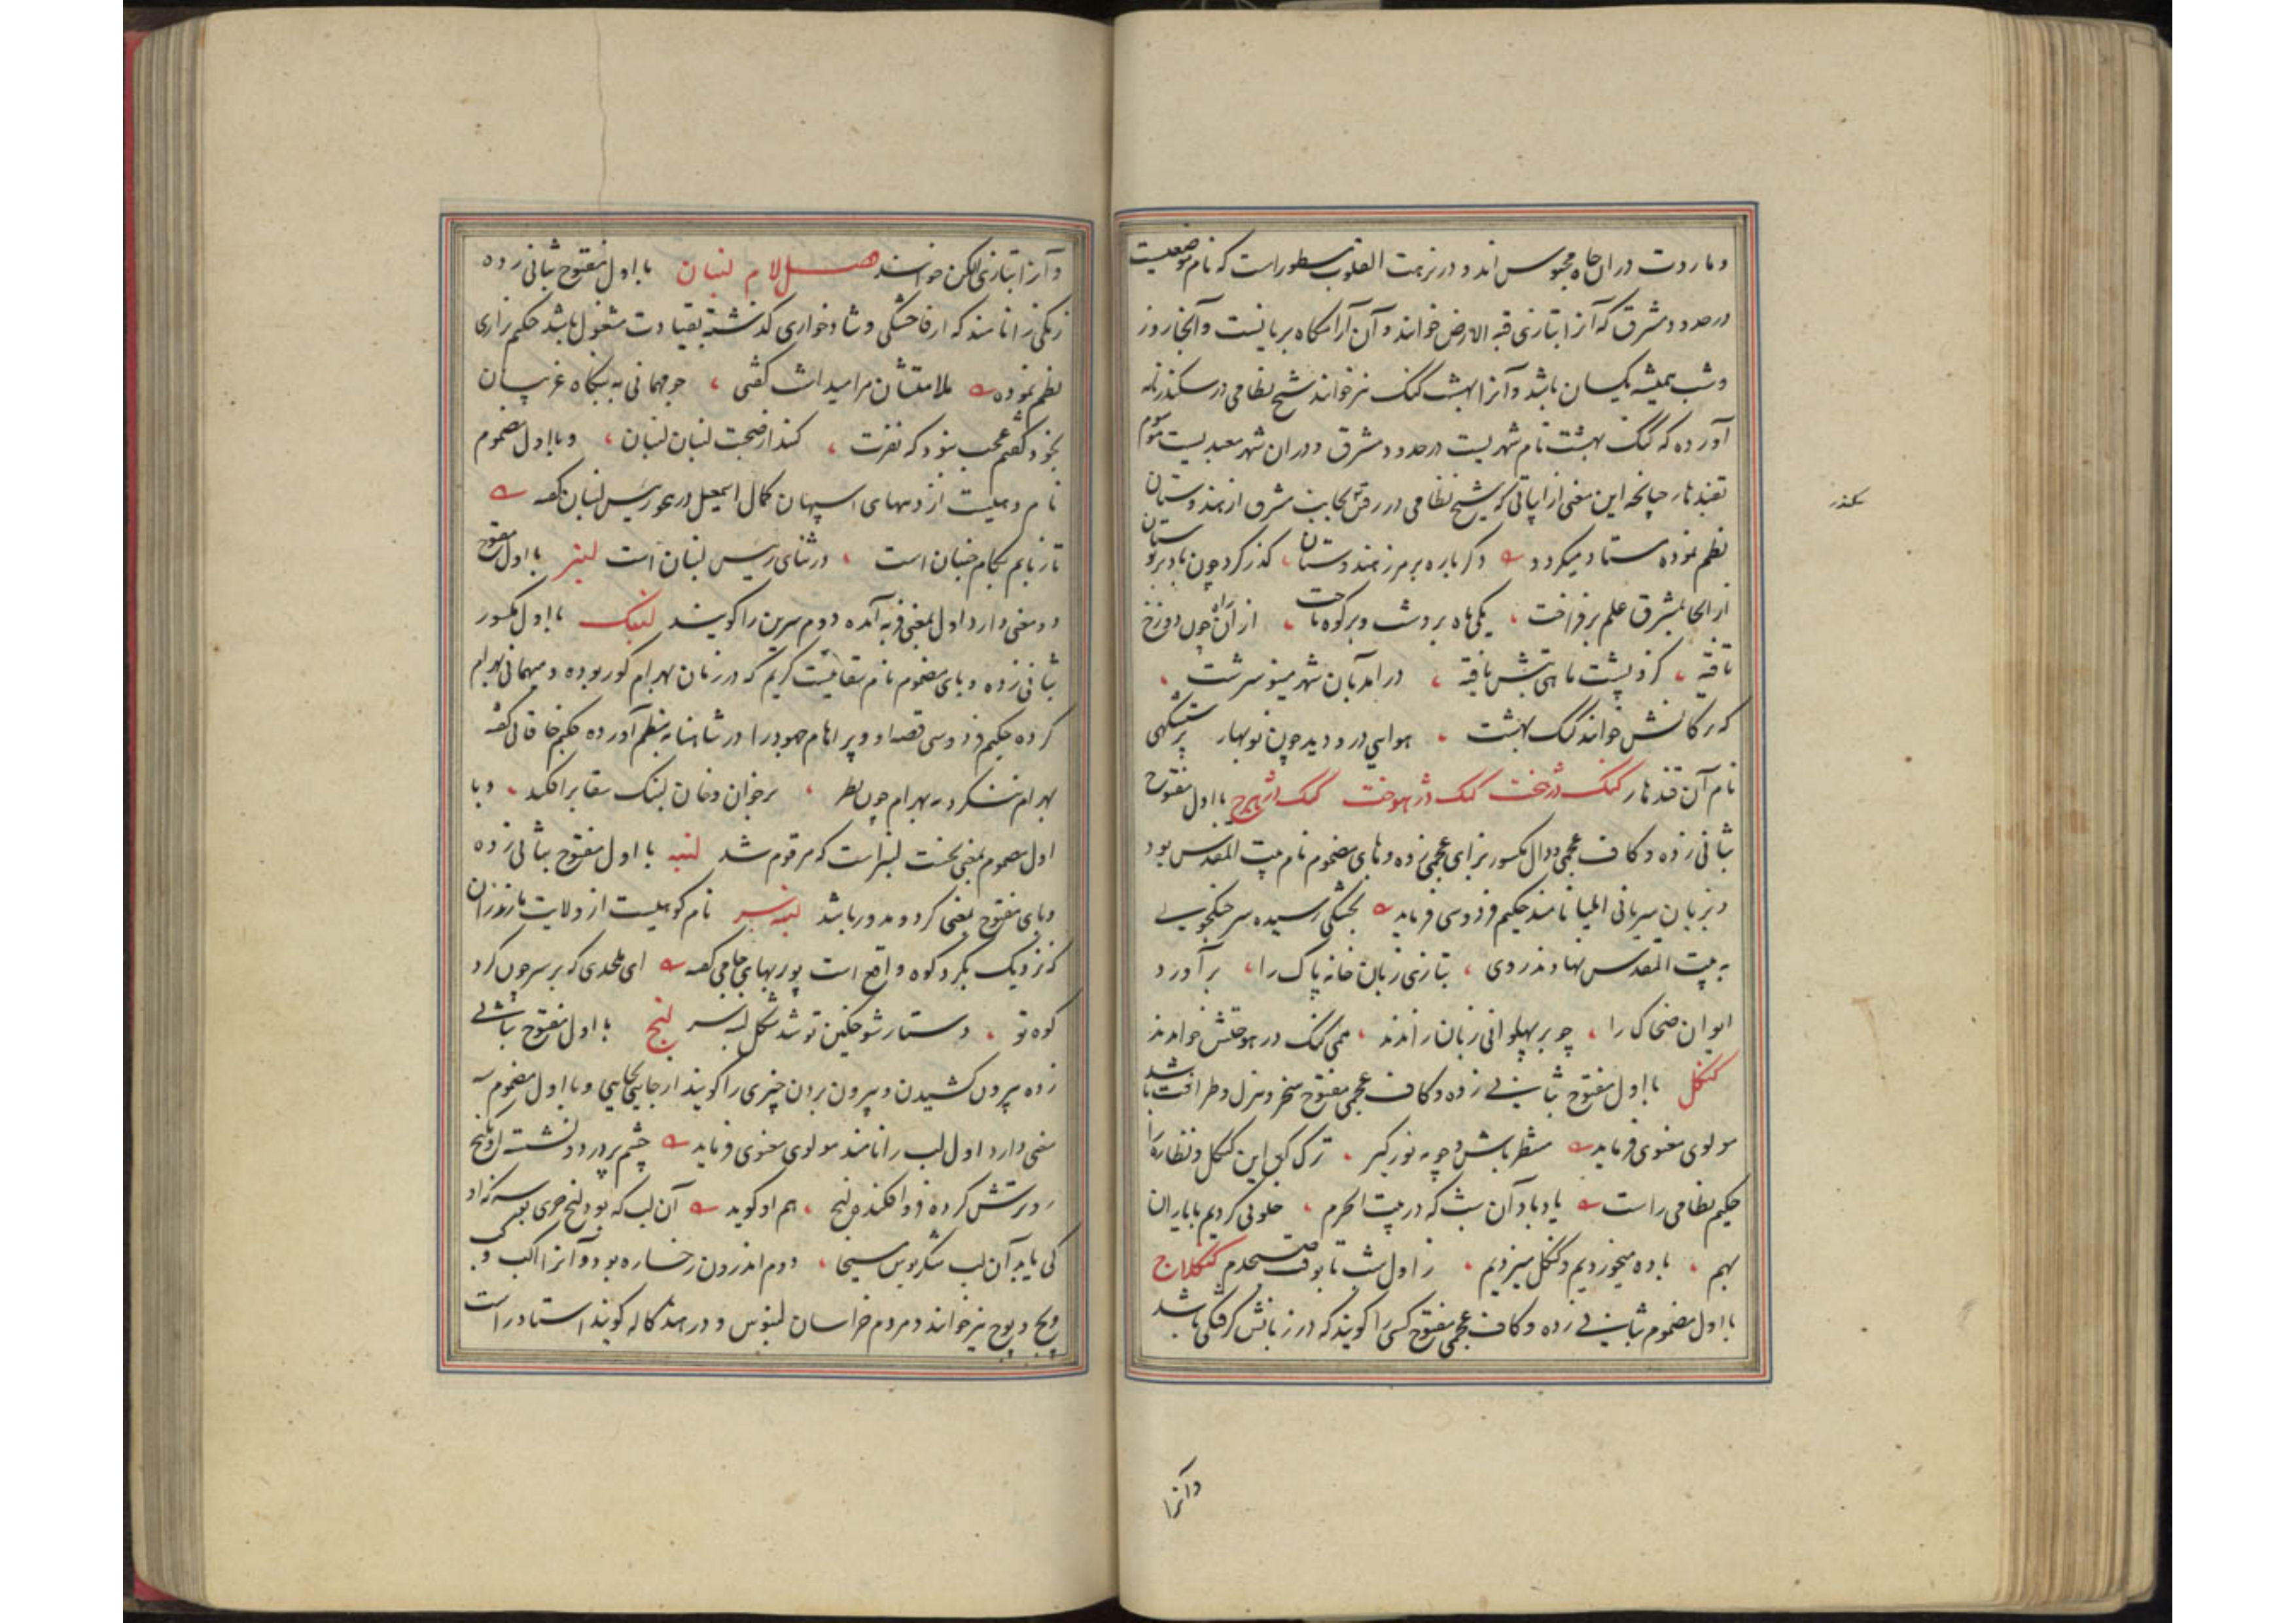 و ماروت دران چاه محبوس اند و در نزهت القلوب مسطور است که نام موضعیست
در حدود مشرق که آنرا بتازی قبه الارض خوانند و آن آرامگاه پریانست و آنجا روز
و شب همیشه یکسان باشد و آنرا بهشت کنک نیز خوانند شیخ نظامی در سکندرنامه
آورده که کنک بهشت نام شهریست در حدود مشرق و دران شهر معبدیست موسوم
بقندهار چنانچه این معنی از ابیاتی که شیخ نظامی در رفتن بجانب مشرق از هندوستان
سکندر
نظم نموده مستفاد میکردد دکر باره بر مرز هندوستان ، کذر کرد چون باد بر بوستان
از انجا بمشرق علم بر فراخت ، یکی ماه بر دشت و بر کوه تاخت ، از ان راه چون دوزخ
تافته ، کزو پشت ماهی تبش یافته ، درامد بآن شهر مینو سرشت ،
که ترکانش خوانند کنک بهشت ، هوایی درو دید چون نوبهار پرستشکهی
نام آن قندهار کنک دژخت کنک دژهوخت کنک دژهرج با اول مفتوح
بثانی زده و کاف عجمی و دال مکسور بزای عجمی زده و های مضموم نام بیت المقدس بود
و بزبان سریانی ایلیا نامند حکیم فردوسی فرماید بخشکی رسیده سر جنکجوی
به بیت المقدس نهادند روی ، بتازی زبان خانه پاک را ، برآورد
ایوان ضحاک را ، چو بر پهلوانی زبان راندند ، همی کنک درهوختش خواندند
کنکل با اول مفتوح بثانی زده و کاف عجمی مفتوح سخر و هزل و ظرافت باشد
مولوی معنوی فرماید منتظر باش و چو مه نور کیر ، ترک کن این کنکل و نظاره را
حکیم نظامی راست یاد باد آن شب که در بیت الحرم ، خلوتی کردیم با یاران
بهم ، باده میخوردیم و کنکل میزدیم ، ز اول شب تا بوقت صبحدم کنکلاج
با اول مضموم بثانی زده و کاف عجمی مفتوح کسی را کویند که در زبانش کرفتکی باشد
وآنرا
و آنرا بتازی الکن خوانند فصل لام لنبان با اول مفتوح بثانی زده
زنکی را نامند که از فاحشکی و شادخواری کذشته بقیادت مشغول باشد حکیم نزاری
نظم نموده ملامتشان مرا میداشت کفتی ، چو مهمانی به بنکاه غریبان
بخود کفتم عجب نبود که نفرت ، کند از صحبت لنبان لنبان ، و با اول مضموم
نام دهیست از دههای اسپهان کمال اسمعیل در هجو رئیس لنبان کفته
تا زبانم بکام جنبان است ، در ثنای رئیس لنبان است لنبر با اول مفتوح
دو معنی دارد اول بمعنی فربه آمده دوم سرین را کویند لنبک با اول مکسور
بثانی زده و بای مضموم نام سقائیست کریم که در زمان بهرام کور بوده و میهمانی بهرام
کرده حکیم فردوسی قصه او و براهام جهود را در شاهنامه بنظم آورده حکیم خاقانی کفته
بهرام ننکرد به براهام چون نظر ، بر خوان و خان لنبک سقا برافکند ، و با
اول مضموم بمعنی نخست لنبر است که مرقوم شد لنبه با اول مفتوح بثانی زده
و بای مفتوح بمعنی کرد و مدور باشد لنبه سر نام کوهیست از ولایت مازندران
که نزدیک بکرد کوه واقع است پوربهای جامی کفته ای ملحدی که بر سر چون کرد
کوه تو ، دستار شوخکین تو شد شکل لنبه سر لنج با اول مفتوح بثانی
زده بیرون کشیدن و بیرون بردن چیزی را کویند از جایی بجایی و با اول مضموم سه
معنی دارد اول لب را نامند مولوی معنوی فرماید چشم پردرد و نشسته او بکنج
رو ترش کرده فرو افکنده لنج ، هم او کوید آن لب که بود لنج خری بوسه که او
کی یابد آن لب شکربوس مسیحا ، دوم اندرون رخساره بود و آنرا اکب و
وپج و پوچ نیز خوانند و مردم خراسان لنبوس و در هند کاله کویند استاد راست